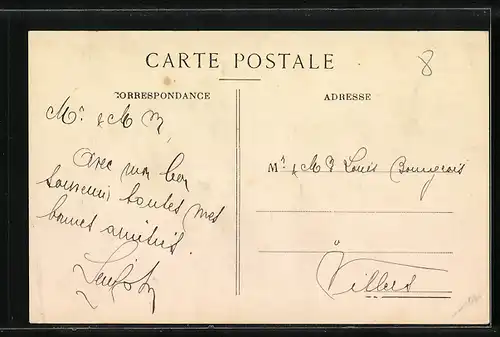 CARTE POSTALE
8
CORRESPONDANCE
ADRESSE
Mr & M
avec mon bon
souvenir toutes mes
bonnes amitiés.
Mr & Md Louis Bourgeois
à
Villers